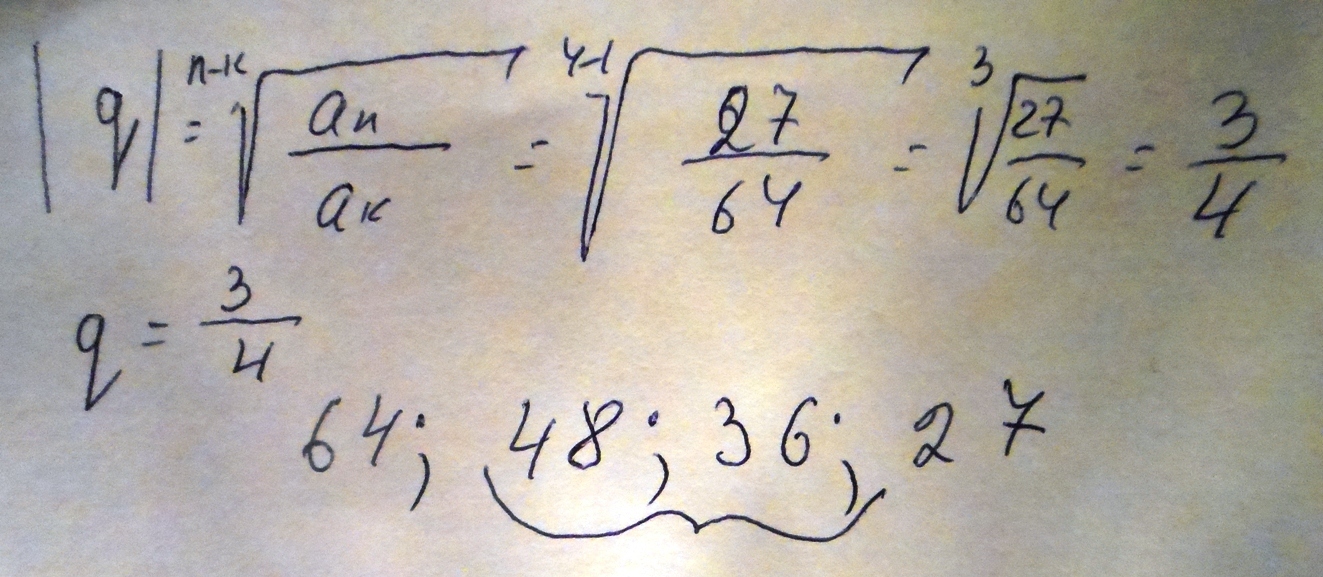 |q| = \sqrt[n-k]{\frac{a_n}{a_k}} = \sqrt[4-1]{\frac{27}{64}} = \sqrt[3]{\frac{27}{64}} = \frac{3}{4}
q = \frac{3}{4}
64; 48; 36; 27